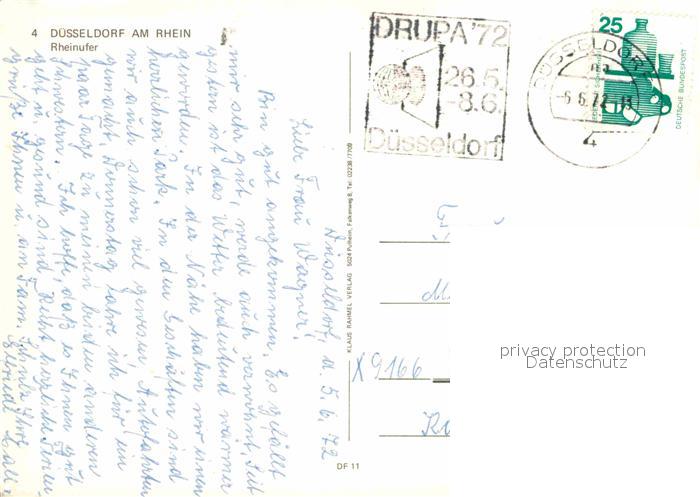 4 DÜSSELDORF AM RHEIN
Rheinufer
Düsseldorf, d. 5.6.72
Liebe Frau Wagner!
Bin gut angekommen. Es gefällt
mir sehr gut, werde auch verwöhnt. Seit
gestern ist das Wetter bedeutend wärmer
geworden. In der Nähe haben wir einen
herrlichen Park. In den Geschäften sind
wir auch schon viel gewesen, Autofahrten
gemacht, Donnerstag fahre ich für ein
paar Tage zu meinen beiden anderen
Ich hoffe, daß es Ihnen gut
geht u. gesund sind. Recht herzliche
Grüße Ihnen u. an Fam.
KLAUS RAHMEL VERLAG 5024 Pulheim, Falkenweg 8, Tel. 02238/7709
DF 11
DRUPA '72
26.5.
-8.6.
Düsseldorf
DÜSSELDORF
-6.6.72-
4
25
DEUTSCHE BUNDESPOST
X9166
privacy protection
Datenschutz